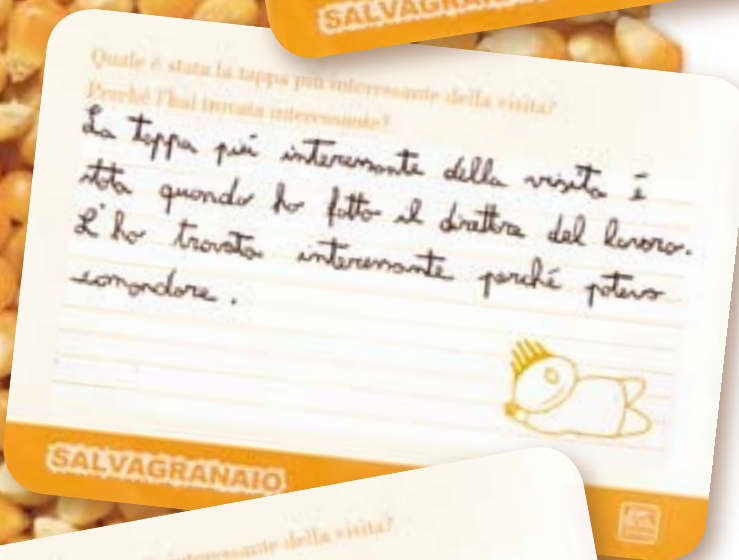 SALVAGRANAIO
Quale è stata la tappa più interessante della visita?
Perché l'hai trovata interessante?
La tappa più interessante della visita è
stata quando ho fatto il direttore del lavoro.
L'ho trovata interessante perché potevo
comandare.
SALVAGRANAIO
interessante della visita?